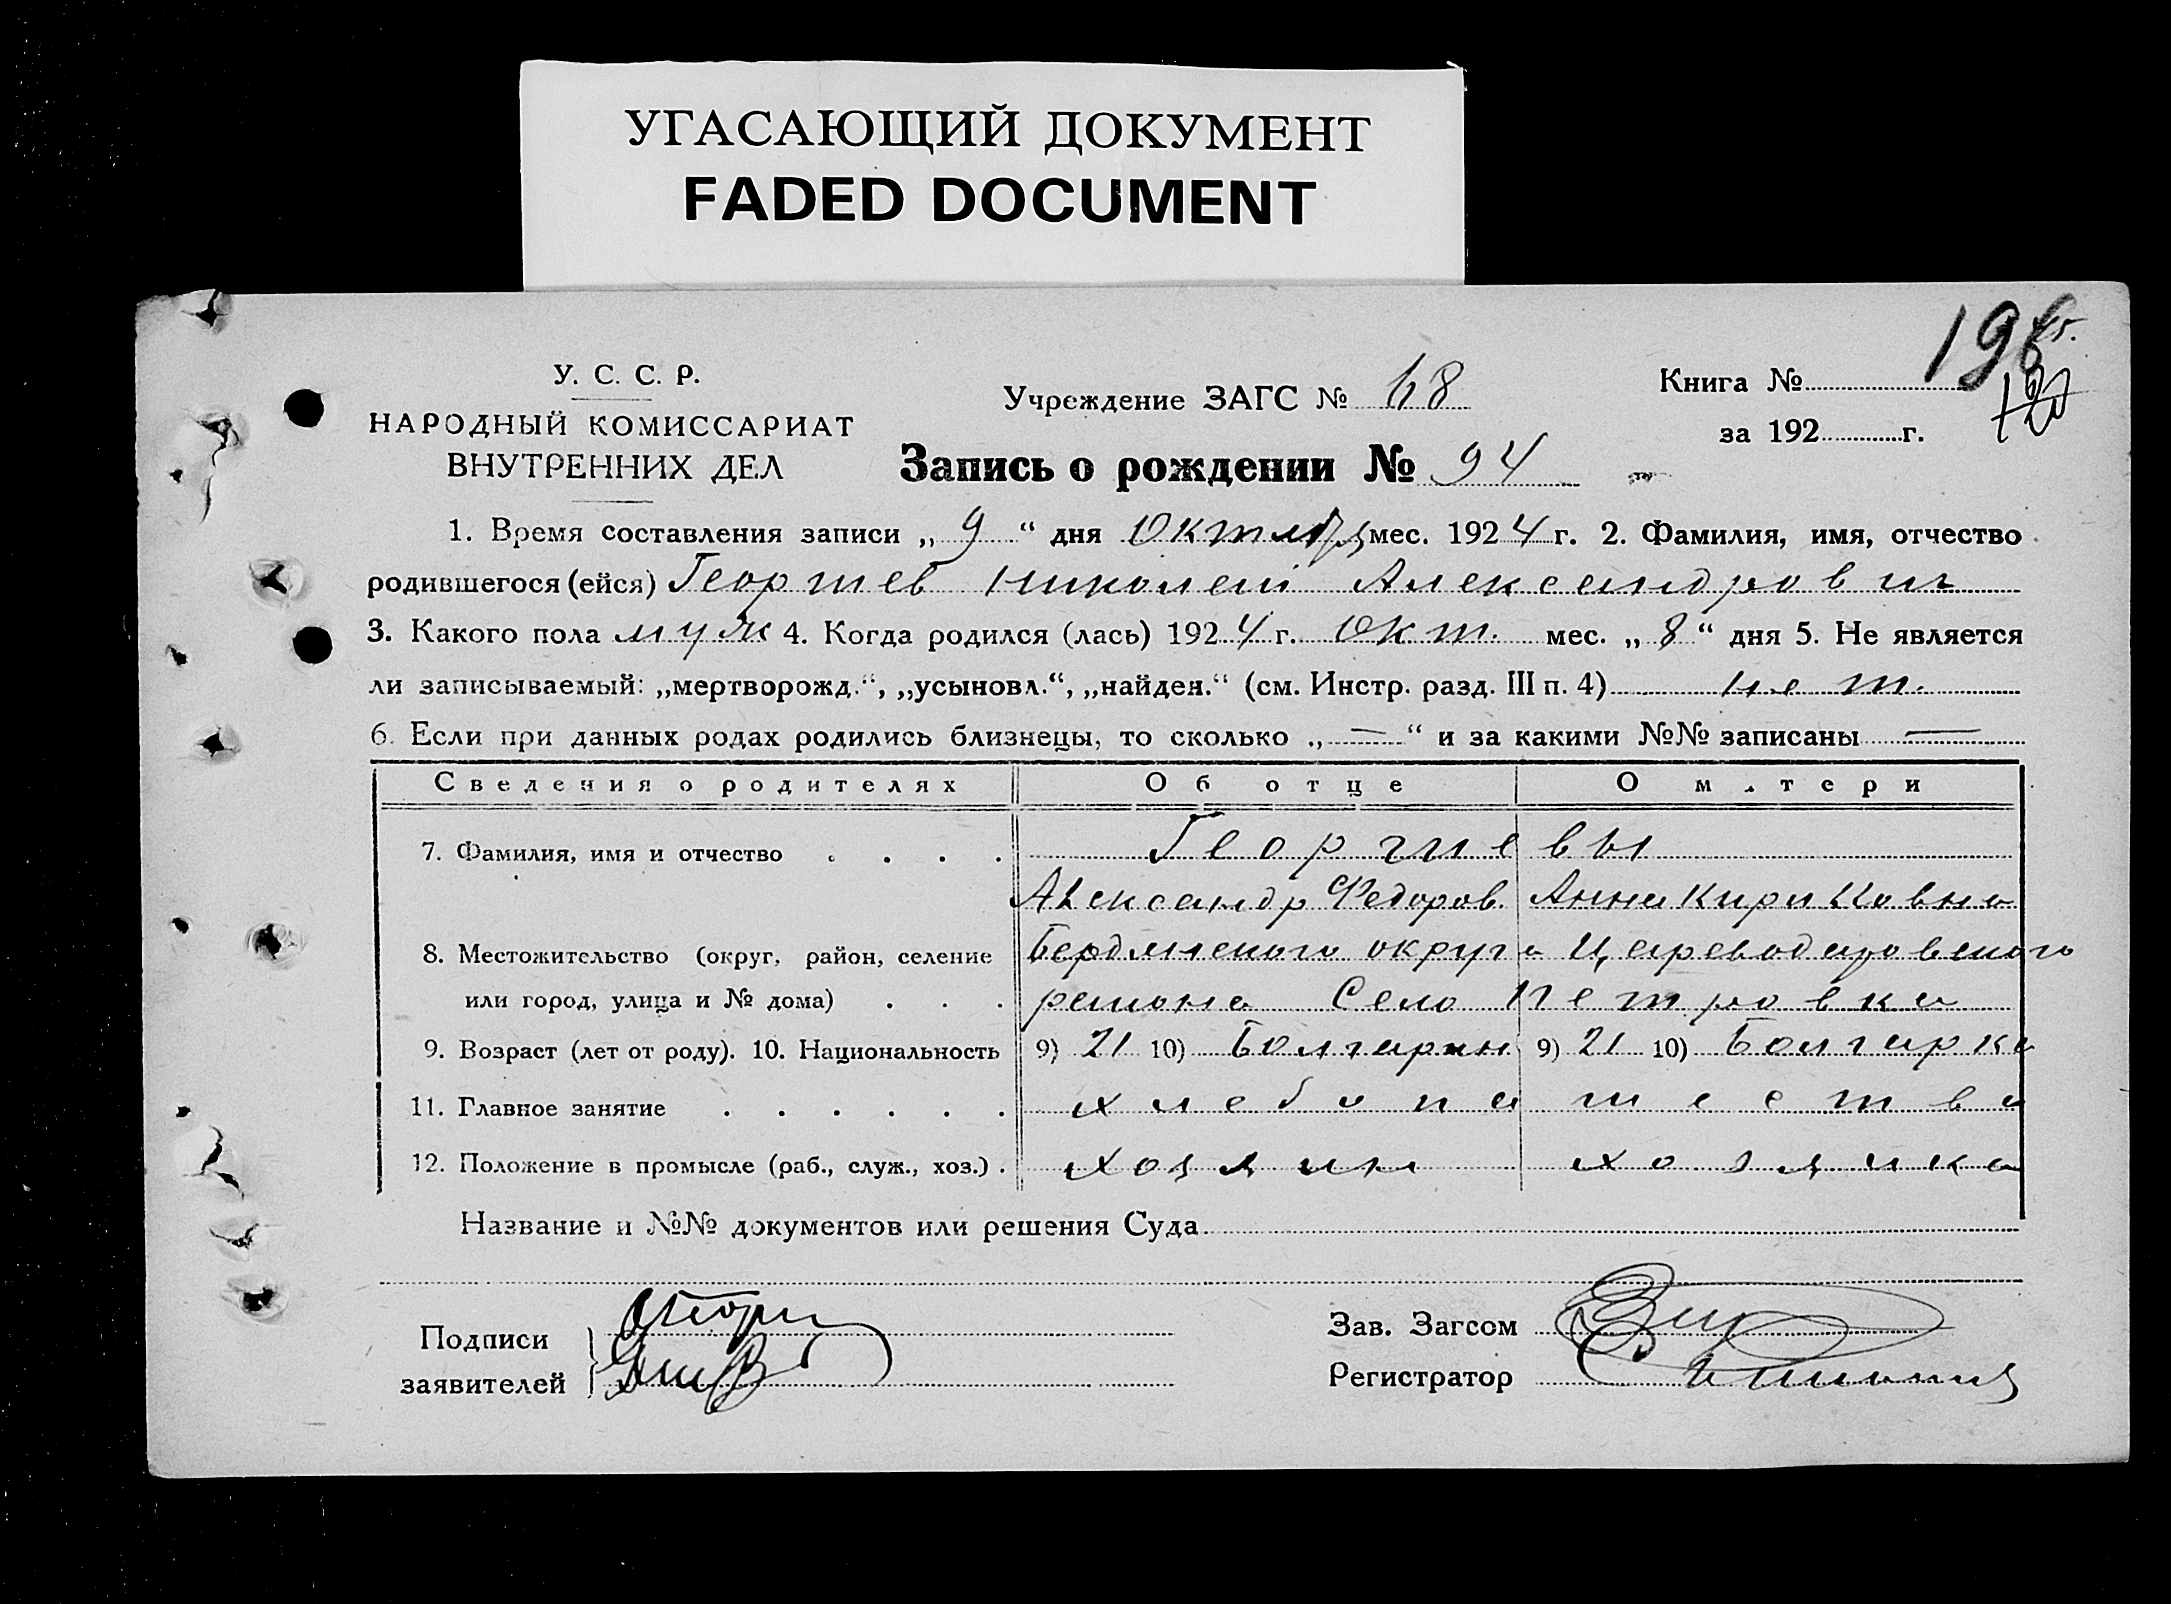 УГАСАЮЩИЙ ДОКУМЕНТ
FADED DOCUMENT
У. С. С. Р.
НАРОДНЫЙ КОМИССАРИАТ
ВНУТРЕННИХ ДЕЛ
Учреждение ЗАГС № 68
Книга №
за 192 г.
Запись о рождении № 94
1. Время составления записи „ 9 “ дня Октября мес. 1924 г. 2. Фамилия, имя, отчество
родившегося (ейся) Георгиев Николай Александрович
3. Какого пола муж 4. Когда родился (лась) 1924 г. Окт. мес. „ 8 “ дня 5. Не является
ли записываемый: „мертворожд.“, „усыновл.“, „найден.“ (см. Инстр. разд. III п. 4) нет.
6. Если при данных родах родились близнецы, то сколько „ — “ и за какими №№ записаны —
Сведения о родителях Об отце О матери
7. Фамилия, имя и отчество . . . . Георгиевы
Александр Федоров. Анна Кирилловна
8. Местожительство (округ, район, селение Бердянского округа Цареводаровского
или город, улица и № дома) . . . района Село Петровка
9. Возраст (лет от роду). 10. Национальность 9) 21 10) Болгарин 9) 21 10) Болгарка
11. Главное занятие . . . . . . хлебопашество
12. Положение в промысле (раб., служ., хоз.) . хозяин хозяйка
Название и №№ документов или решения Суда
Подписи
заявителей
Зав. Загсом
Регистратор